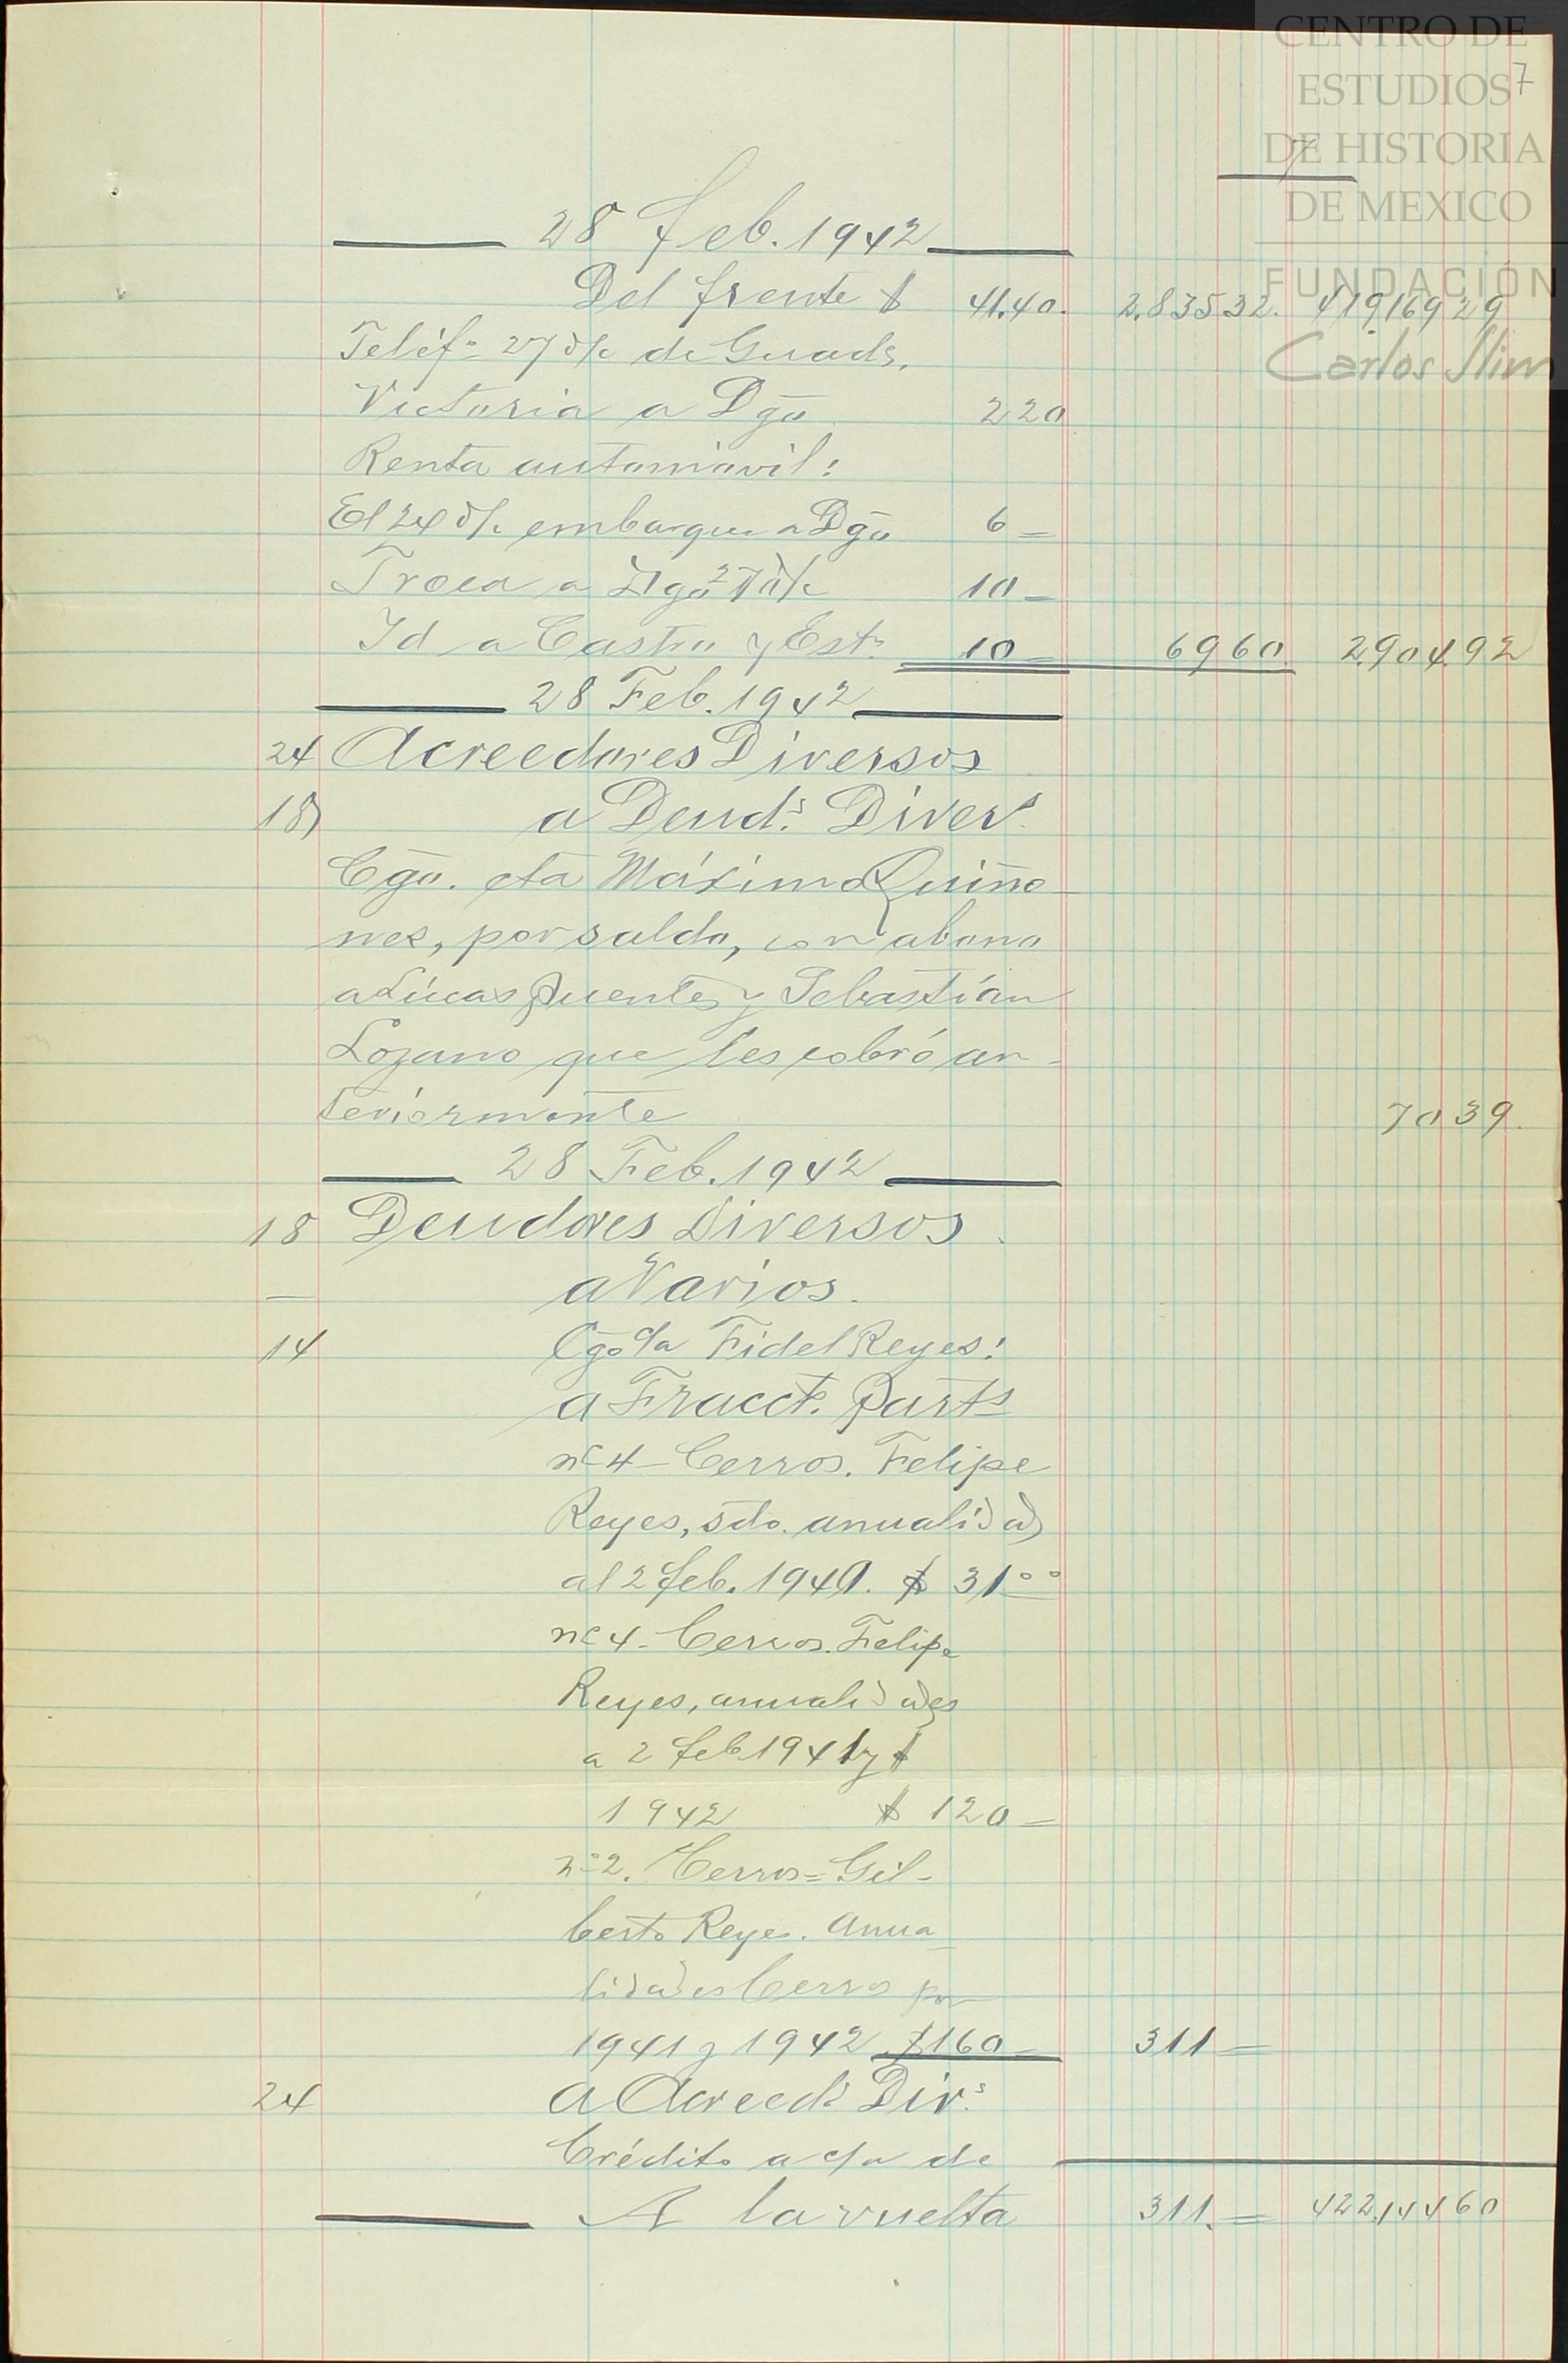 CENTRO DE
ESTUDIOS
DE HISTORIA
DE MEXICO
FUNDACIÓN
Carlos Slim
7
7
28 Feb. 1942
Del frente $ 41.40. 2,835 32. 419,169 29
Teléf. 27 d/c de Guads.
Victoria a Dgo. 2 20
Renta automóvil:
El 24 d/c embarque a Dgo 6 =
Troca a Dgo 27 d/c 10 =
Id a Castro y Est. 10 = 69 60 2,904 92
28 Feb. 1942
24 Acreedores Diversos
18 a Deud.s Divers.
Cgo. cta Máximo Quiño-
nes, por saldo, con abono
a Lucas Puentes y Sebastián
Lozano que les cobró an-
teriormente 70 39.
28 Feb. 1942
18 Deudores Diversos.
— a Varios.
14 Cgo c/a Fidel Reyes:
a Fracct. Parts
nº 4 - Cerros. Felipe
Reyes, sdo. anualidad
al 2 feb. 1940. $ 31 00
nº 4 - Cerros. Felipe
Reyes, anualidades
a 2 feb 1941 y $
1942 $ 120 =
nº 2. Cerros = Gil-
berto Reyes. Anua-
lidades Cerros por
1941 y 1942 $ 160 = 311 =
24 a Acreed.s Div.s
Crédito a c/a de
A la vuelta 311. = 422,144 60